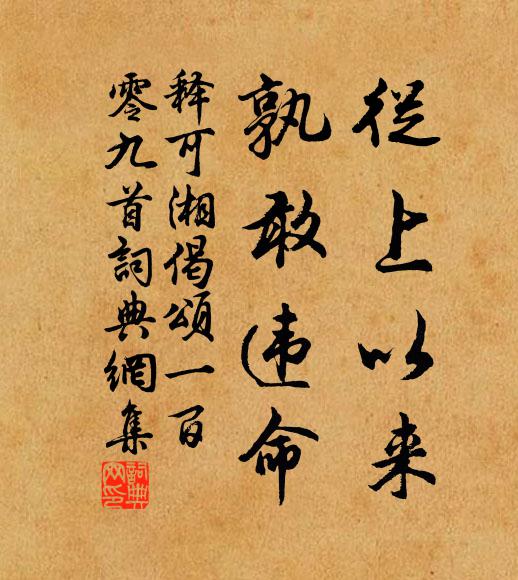 從上以来
孰敢违命
释可湘偈頌一百
零九首詞典網集
詞典网印